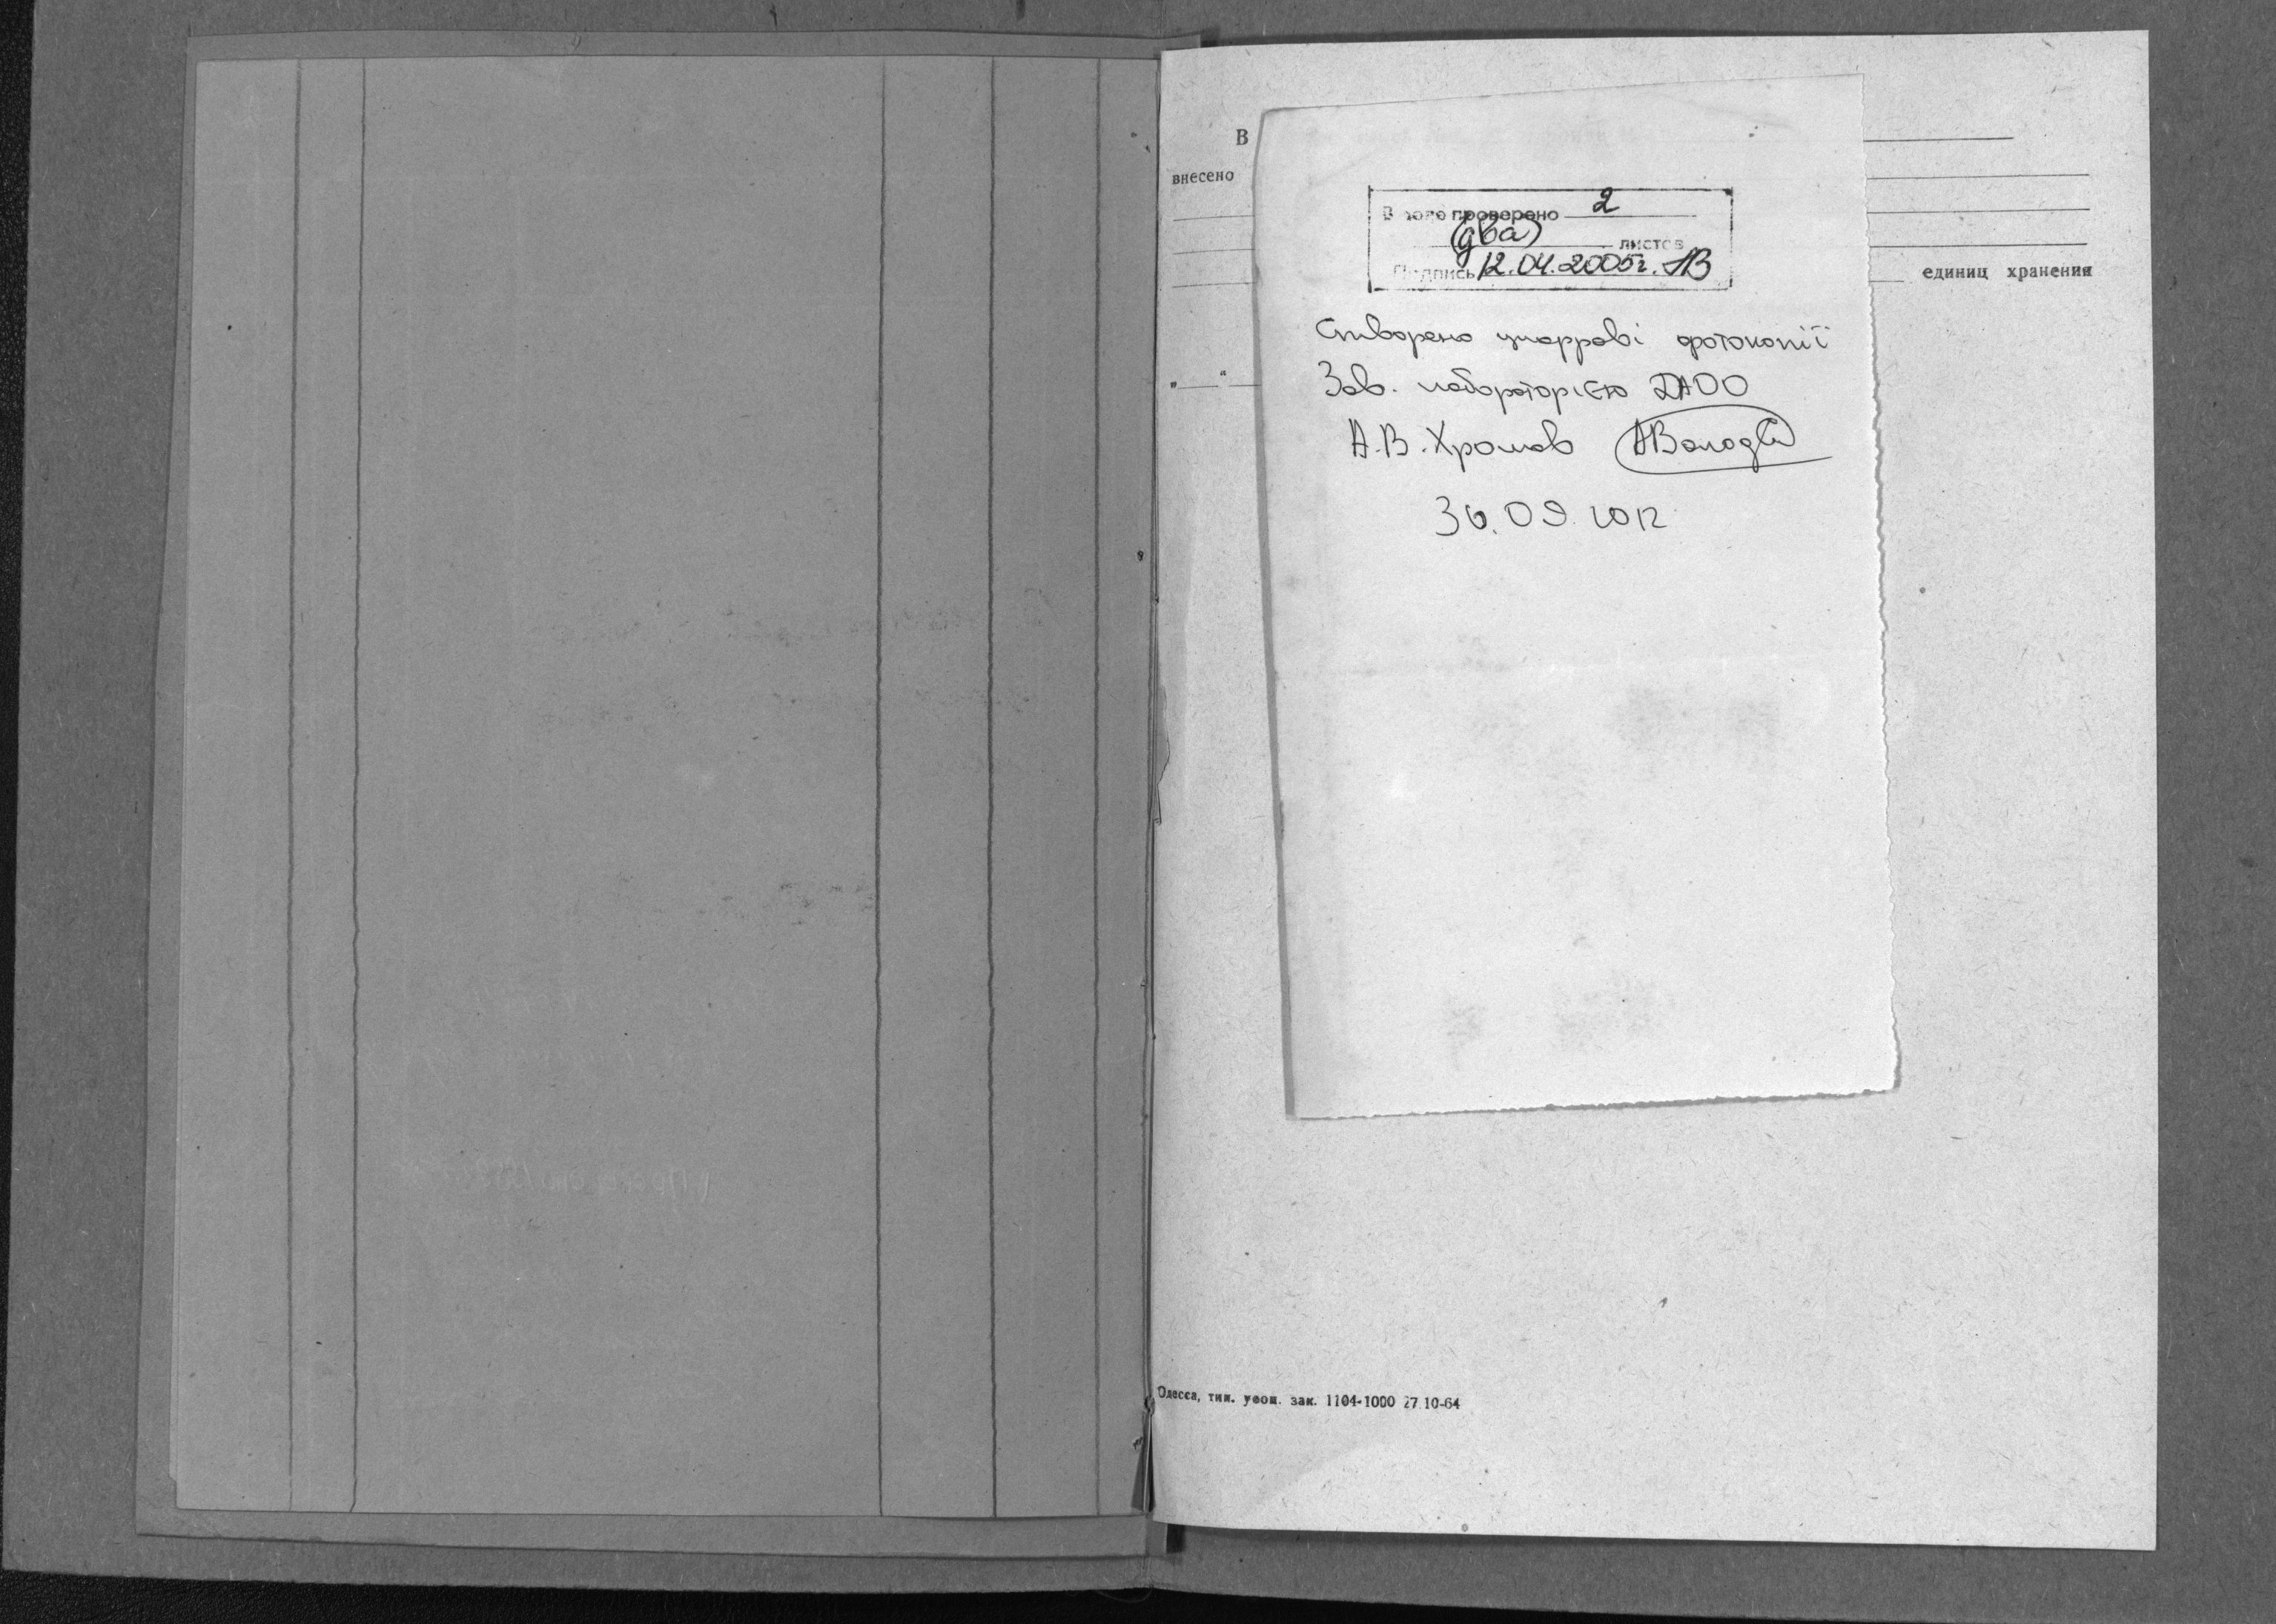 В
внесено
В деле проверено 2
(два) листов
Подпись 12.04.2005г.
единиц хранения
Створено цифрові фотокопії
Зав. лабораторією ДАОО
А.В. Хромов
30.09.2012
Одесса, тип. зак. 1104-1000 27.10-64